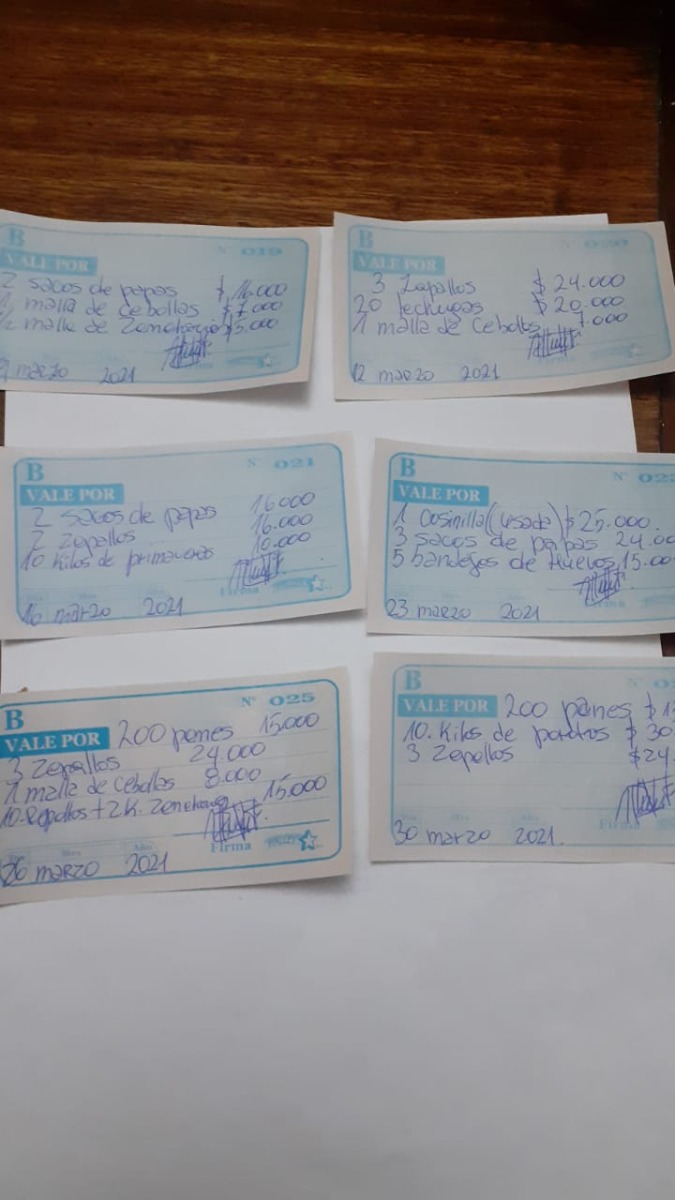 B
Nº 019
VALE POR
2 sacos de papas $ 16.000
1 malla de cebollas $ 7.000
1/2 malla de $ 5.000
marzo 2021
B
Nº 020
VALE POR
3 Zapallos $ 24.000
20 lechugas $ 20.000
1 malla de Cebollas 7.000
12 marzo 2021
B
Nº 021
VALE POR
2 sacos de papas 16000
2 Zapallos 16.000
10 kilos de primaveras 10.000
Firma
16 marzo 2021
B
Nº 022
VALE POR
1 Cosinilla (usada) $ 25.000.
3 sacos de papas 24.00
5 bandejas de Huevos 15.00
Firma
23 marzo 2021
B
Nº 025
VALE POR 200 panes 15.000
3 Zapallos 24.000
1 malla de Cebollas 8.000
10 Repollos + 2 K. 15.000
Firma
26 marzo 2021
B
Nº
VALE POR 200 panes $ 1
10. Kilos de porotos $ 30
3 Zapallos $ 24.
Firma
30 marzo 2021.